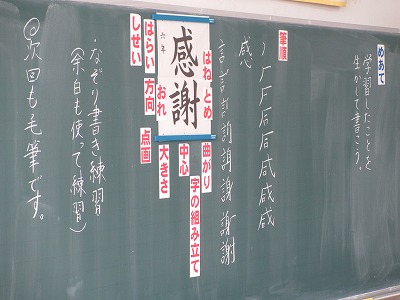 めあて
学習したことを
生かして書こう。
筆順
ノ厂F后后咸咸感
感
謝謝
はね とめ
曲がり
字の組み立て
中心
大きさ
感謝
六年
おれ
点画
はらい 方向
しせい
・なぞり書き練習
（余白も使って練習）
◎次回も毛筆です。